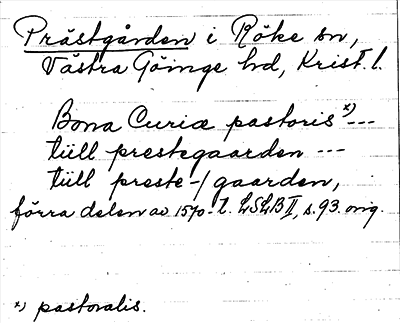 Prästgården i Röke sn,
Västra Göinge hd, Krist. l.
Bona Curiæ pastoris *) ---
tüll prestegaarden ---
tüll preste-/gaarden,
förra delen av 1570-t. LSLB II, s. 93. orig.
*) pastoralis.